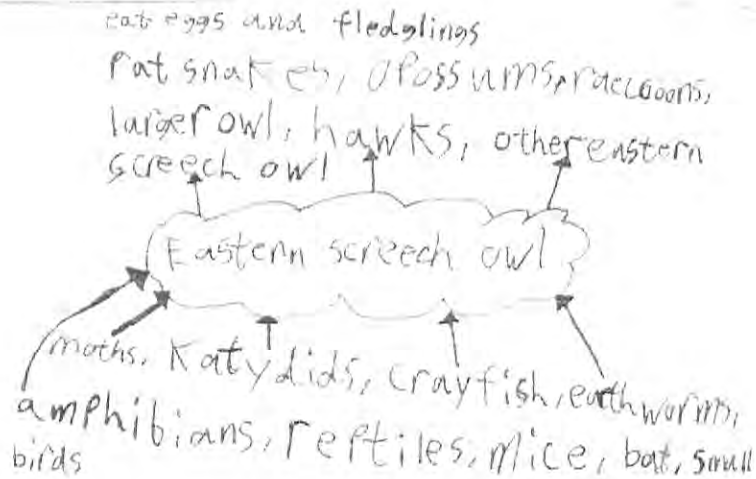 eat eggs and fledglings
rat snakes, opossums, raccoons,
larger owl, hawks, other eastern
screech owl
Eastern screech owl
moths, Katydids, crayfish, earthworms,
amphibians, reptiles, mice, bat, small
birds